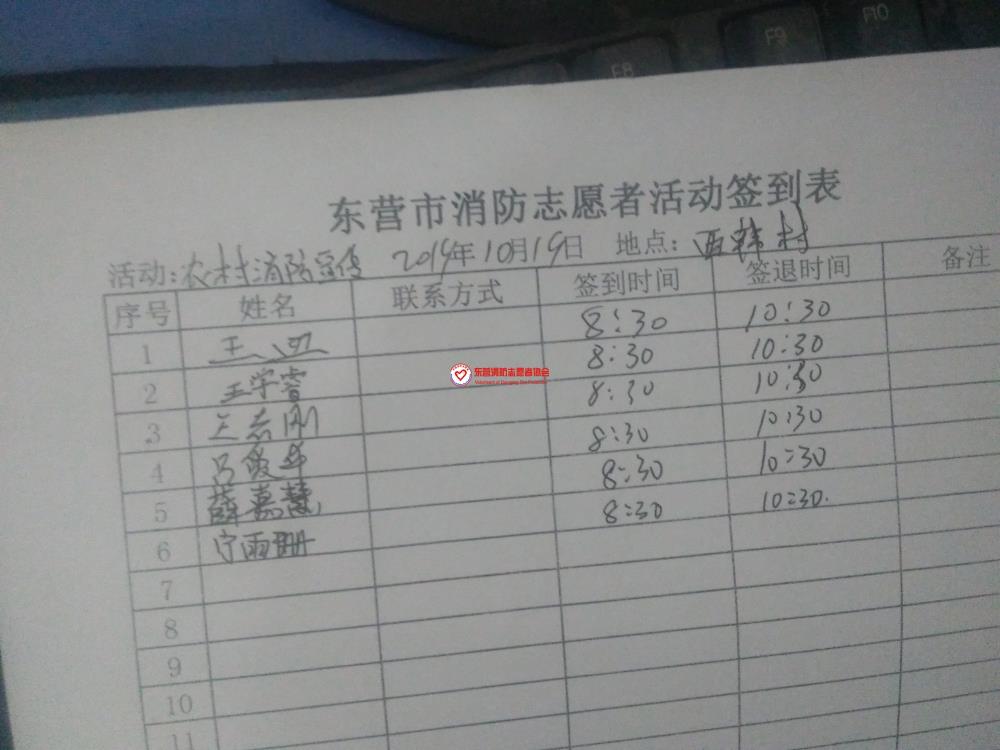 F8 F9 F10
东营市消防志愿者活动签到表
活动:农村消防宣传 2019年10月19日 地点:西韩村
序号 姓名 联系方式 签到时间 签退时间 备注
1 王 8:30 10:30
2 王学睿 8:30 10:30
3 王志刚 8:30 10:30
4 吕爱华 8:30 10:30
5 薛嘉慧 8:30 10:30
6 宁雨珊 8:30 10:30
7
8
9
10
11
东营消防志愿者协会